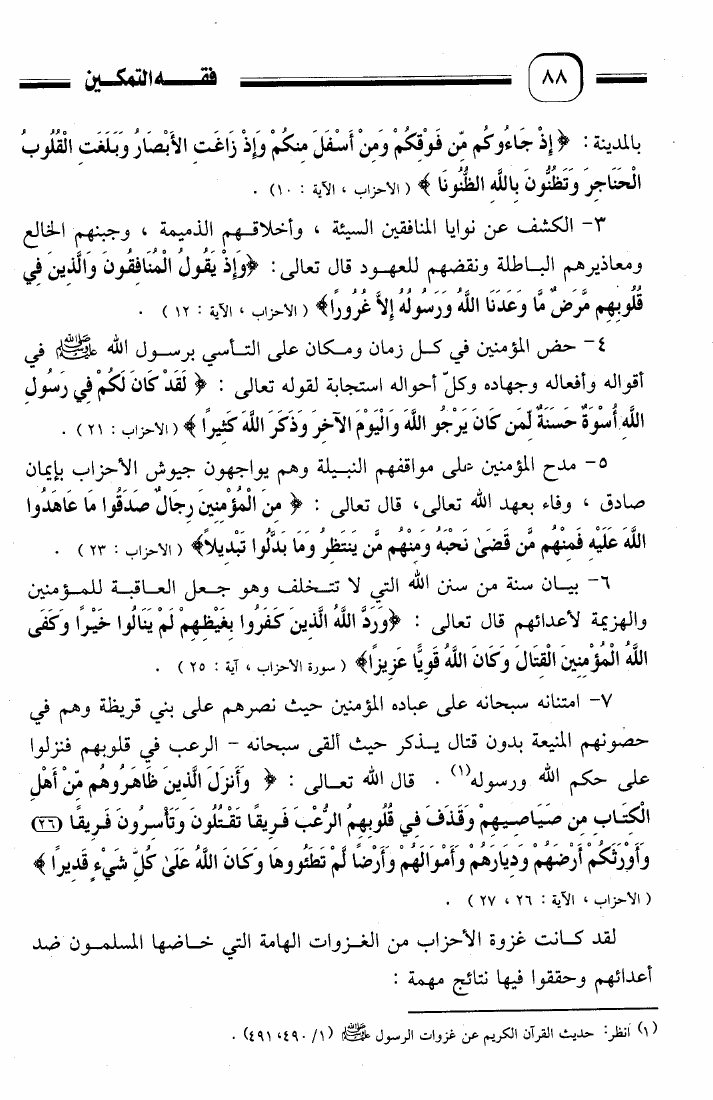 ٨٨
فقـــه التمكـــين
بالمدينة : ﴿ إِذْ جَاءُوكُم مِّن فَوْقِكُمْ وَمِنْ أَسْفَلَ مِنكُمْ وَإِذْ زَاغَتِ الأَبْصَارُ وَبَلَغَتِ الْقُلُوبُ
الْحَنَاجِرَ وَتَظُنُّونَ بِاللَّهِ الظُّنُونَا ﴾ ( الأحزاب ، الآية : ١٠) .
٣- الكشف عن نوايا المنافقين السيئة ، وأخلاقـهم الذميمة ، وجبنهم الخالع
ومعاذيرهم البـاطلة ونقضهم للعهود قال تعالى : ﴿وَإِذْ يَقُولُ الْمُنَافِقُونَ وَالَّذِينَ فِي
قُلُوبِهِم مَّرَضٌ مَّا وَعَدَنَا اللَّهُ وَرَسُولُهُ إِلاَّ غُرُورًا﴾ ( الأحزاب ، الآية : ١٢ ) .
٤- حض المؤمنين في كـل زمان ومكان على التـأسي برسـول الله ﷺ في
أقواله وأفعاله وجهاده وكلّ أحواله استجابة لقوله تعالى : ﴿ لَقَدْ كَانَ لَكُمْ فِي رَسُولِ
اللَّهِ أُسْوَةٌ حَسَنَةٌ لِّمَن كَانَ يَرْجُو اللَّهَ وَالْيَوْمَ الآخِرَ وَذَكَرَ اللَّهَ كَثِيرًا ﴾ ( الأحزاب : ٢١ ) .
٥- مدح المؤمنين على مواقفهم النبـيلة وهم يواجهون جيوش الأحزاب بإيمان
صادق ، وفاء بعهد الله تعالى، قال تعالى : ﴿ مِنَ الْمُؤْمِنِينَ رِجَالٌ صَدَقُوا مَا عَاهَدُوا
اللَّهَ عَلَيْهِ فَمِنْهُم مَّن قَضَىٰ نَحْبَهُ وَمِنْهُم مَّن يَنتَظِرُ وَمَا بَدَّلُوا تَبْدِيلاً﴾ ( الأحزاب : ٢٣ ) .
٦- بيـان سنة من سنن الله التي لا تتـخلف وهو جـعل العـاقبـة للمـؤمنين
والهزيمة لأعدائهم قال تعالى : ﴿وَرَدَّ اللَّهُ الَّذِينَ كَفَرُوا بِغَيْظِهِمْ لَمْ يَنَالُوا خَيْرًا وَكَفَى
اللَّهُ الْمُؤْمِنِينَ الْقِتَالَ وَكَانَ اللَّهُ قَوِيًّا عَزِيزًا﴾ ( سورة الأحزاب ، آية : ٢٥ ) .
٧- امتنانه سبحانه على عباده المؤمنين حيث نصرهم على بني قريظة وهم في
حصونهم المنيعة بدون قتال يـذكر حيث ألقى سبحانه - الرعب في قلوبهم فنزلوا
على حكم الله ورسوله(١) . قال الله تعـالى : ﴿ وَأَنزَلَ الَّذِينَ ظَاهَرُوهُم مِّنْ أَهْلِ
الْكِتَابِ مِن صَيَاصِيهِمْ وَقَذَفَ فِي قُلُوبِهِمُ الرُّعْبَ فَرِيقًا تَقْتُلُونَ وَتَأْسِرُونَ فَرِيقًا (٢٦)
وَأَوْرَثَكُمْ أَرْضَهُمْ وَدِيَارَهُمْ وَأَمْوَالَهُمْ وَأَرْضًا لَّمْ تَطَئُوهَا وَكَانَ اللَّهُ عَلَىٰ كُلِّ شَيْءٍ قَدِيرًا ﴾
( الأحزاب ، الآية : ٢٦ ، ٢٧ ) .
لقد كـانت غزوة الأحزاب من الغـزوات الهامة التي خـاضها المسلمـون ضد
أعدائهم وحققوا فيها نتائج مهمة :
(١) انظر: حديث القرآن الكريم عن غزوات الرسول ﷺ (١/ ٤٩٠، ٤٩١) .